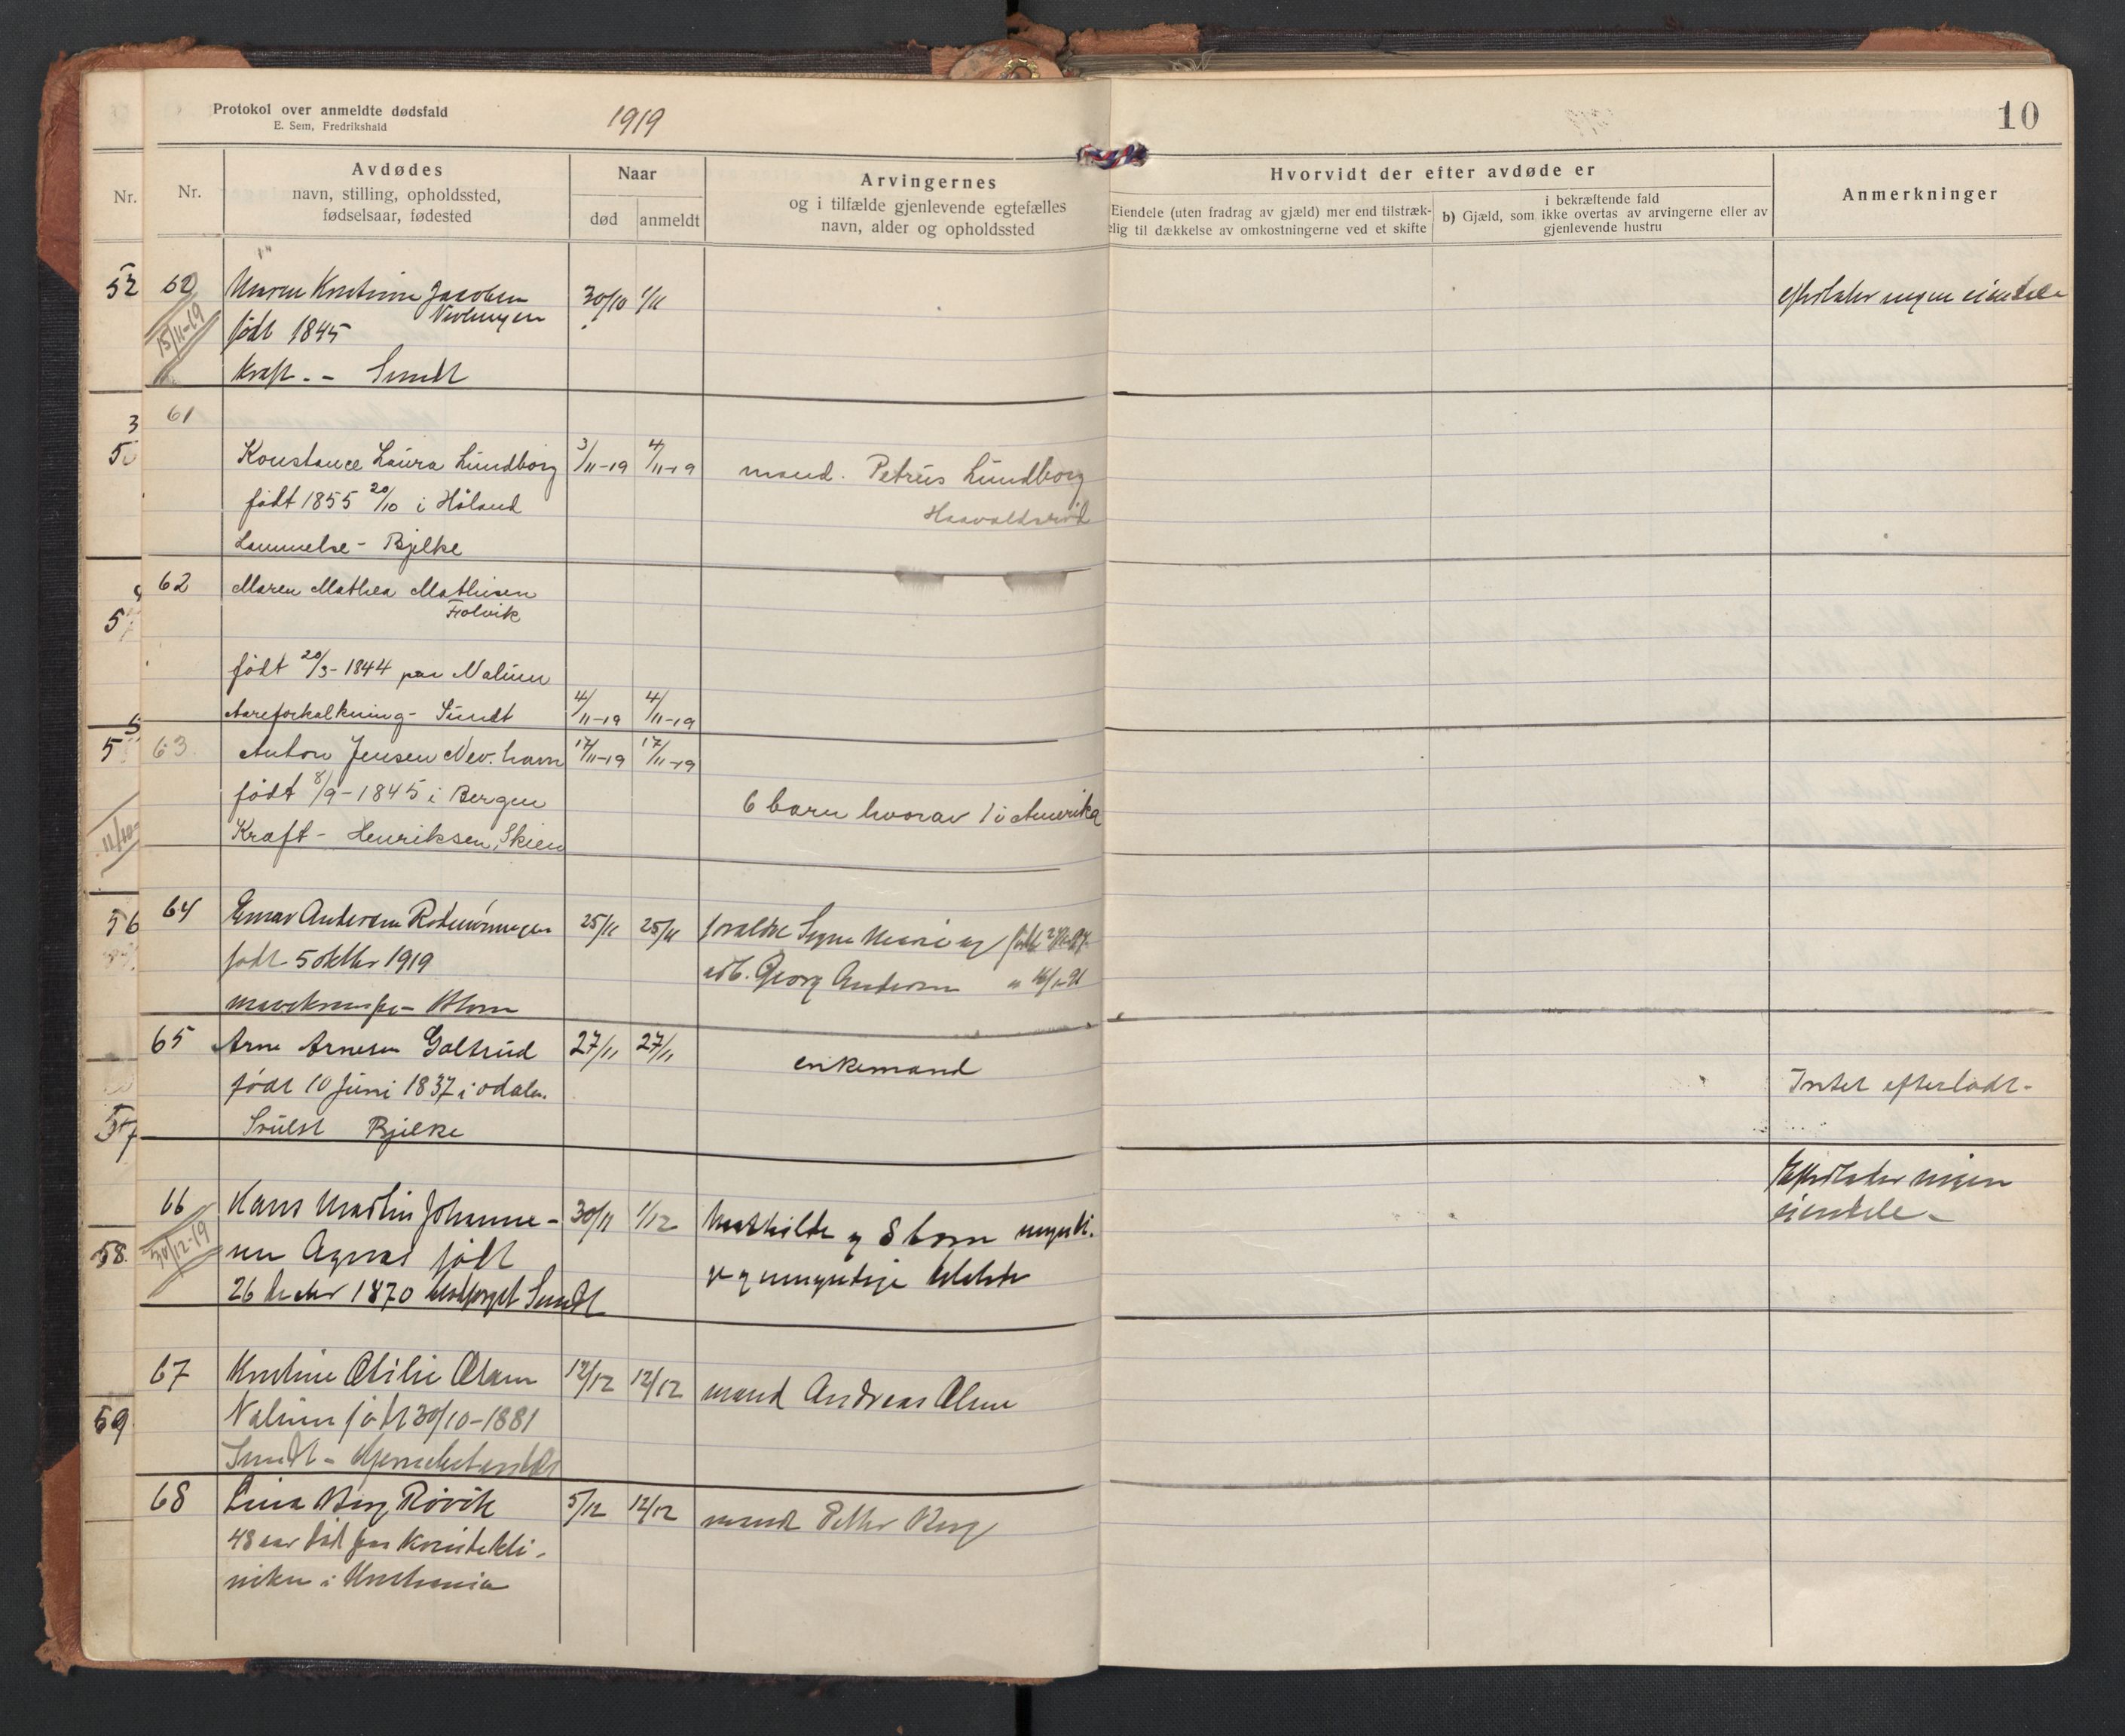 Protokol over anmeldte dødsfald
E. Sem, Fredrikshald
1919
10
Nr.
Nr.
Avdødes
navn, stilling, opholdssted,
fødselsaar, fødested
Naar
død
anmeldt
Arvingernes
og i tilfælde gjenlevende egtefælles
navn, alder og opholdssted
Hvorvidt der efter avdøde er
Eiendele (uten fradrag av gjæld) mer end tilstræk-
elig til dækkelse av omkostningerne ved et skifte
i bekræftende fald
b) Gjæld, som ikke overtas av arvingerne eller av
gjenlevende hustru
Anmerkninger
52
Maren Kristine Jacobsen
født 1845
Kræft. - Sundt
30/10
1/11
efterlater ingen eiendele
15/11-19
61
Konstance Laura Lundborg
født 1855 20/10 i Höland
Lammelse - Bjelke
3/11-19
4/11-19
mand. Petrus Lundborg
Haavaldsrød
62
Maren Mathea Mathisen
Folvik
født 20/3-1844 paa Nalum
Aareforkalkning - Sundt
4/11-19
4/11-19
63
Anton Jensen Nev. havn
født 8/9-1845 i Bergen
Kræft - Henriksen, Skien
17/11-19
17/11-19
6 barn hvorav 1 i Amerika
56
64
født 5 oktbr 1919
25/11
25/11
Georg Andersen
65
Arne Arnesen Goltrud
født 10 Juni 1837 i odalen.
Svulst Bjelke
27/11
27/11
enkemand
Intet efterladt -
57
66
30/12-19
Hans Martin Johanne-
sen Agnes født
26 decbr 1870 Sundt
30/11
1/12
Mathilde og 8 barn myndi.
ge og umyndige
Efterlater ingen
eiendele -
58
67
Kristine Otilie Olsen
Nalum født 30/10-1881
Sundt -
12/12
12/12
mand Andreas Olsen
59
68
Lina Berg Rövik
48 aar død paa Kvindekli-
niken i Kristiania
5/12
12/12
mand Petter Berg